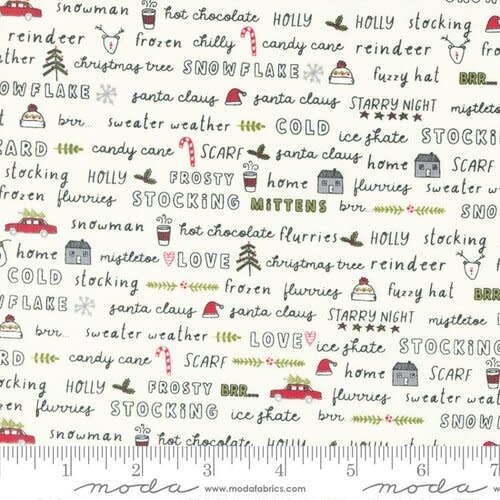 snowman hot chocolate HOLLY stocking
reindeer frozen chilly candy cane reindeer
christmas tree SNOWFLAKE fuzzy hat BRR...
OWFLAKE santa claus santa claus STARRY NIGHT mistletoe
brr... sweater weather COLD ice skate STOCKING
ZARD candy cane SCARF santa claus home SCARF
stocking HOLLY FROSTY home flurries sweater weather
frozen flurries STOCKING MITTENS brr SNO
hot chocolate flurries HOLLY stocking
home mistletoe LOVE christmas tree reindeer
COLD stocking frozen flurries fuzzy hat BRR...
OWFLAKE santa claus santa claus STARRY NIGHT mistletoe
brr... sweater weather LOVE ice skate STOCKING
ARD candy cane SCARF home SCARF
stocking HOLLY FROSTY BRR... flurries sweater weather
frozen flurries STOCKING ice skate brr SNOW
snowman hot chocolate HOLLY stocking
1 2 3 4 5 6 7
moda www.modafabrics.com moda www.modafabrics.com moda